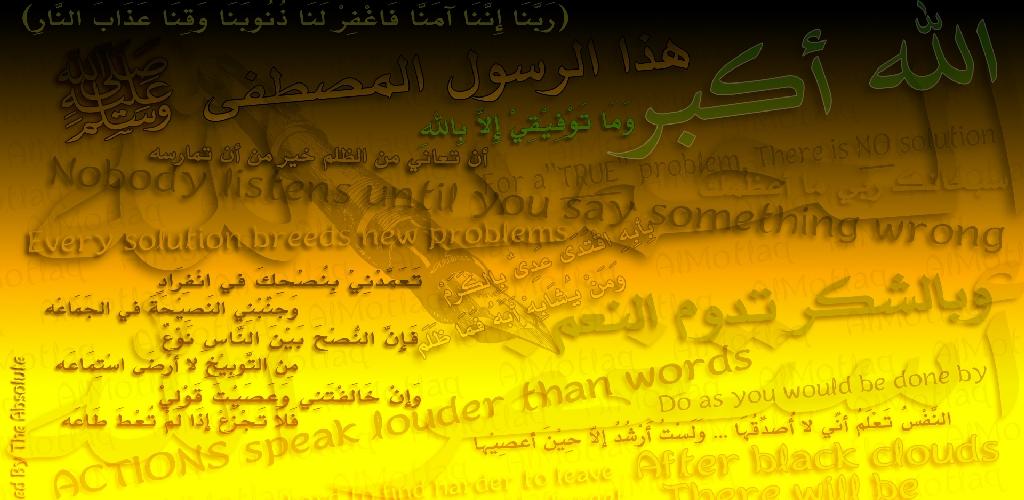 (رَبَّنَا إِنَّنَا آمَنَّا فَاغْفِرْ لَنَا ذُنُوبَنَا وَقِنَا عَذَابَ النَّارِ)
الله أكبر
هذا الرسول المصطفى
صَلَّى اللهُ عَلَيْهِ وَسَلَّمَ
وَمَا تَوْفِيْقِيْ إِلاَّ بِاللهِ
أن تعاني من الظلم خير من أن تمارسه
For a "TRUE" problem, There is NO solution
سبحانك ربي ما أعظمك
Nobody listens until you say something wrong
Every solution breeds new problems
بِأَبِهِ اقْتَدَى عَدِيٌّ بِالكَرَمْ
وَمَنْ يُشَابِهْ أَبَهُ فَمَا ظَلَمْ
وبالشكر تدوم النعم
تَعَمَّدْنِيْ بِنُصْحِكَ في انْفِرَادِ
وَجَنِّبْنِي النَّصِيْحَةَ في الجَمَاعَه
فَإِنَّ النُّصْحَ بَيْنَ النَّاسِ نَوْعٌ
مِن التَّوبِيْخِ لا أَرْضَى اسْتِمَاعَه
وَإِنْ خَالَفْتَنِي وَعَصَيْتَ قَوْلِيْ
فلا تَجْزَعْ إِذَا لَمْ تُعْطَ طَاعَه
ACTIONS speak louder than words
Do as you would be done by
النَّفْسُ تَعْلَمُ أَنِّي لا أُصَدِّقُهَا ... ولَسْتُ أَرْشُدُ إِلاَّ حِيْنَ أَعْصِيْهَا
After black clouds
There will be
find harder to leave
ed By The Absolute
AlMotlaq